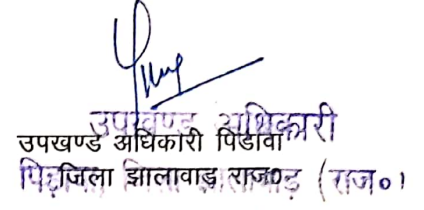 उपखण्ड अधिकारी
उपखण्ड अधिकारी पिडावा
जिला झालावाड़ राज०
(राज०)